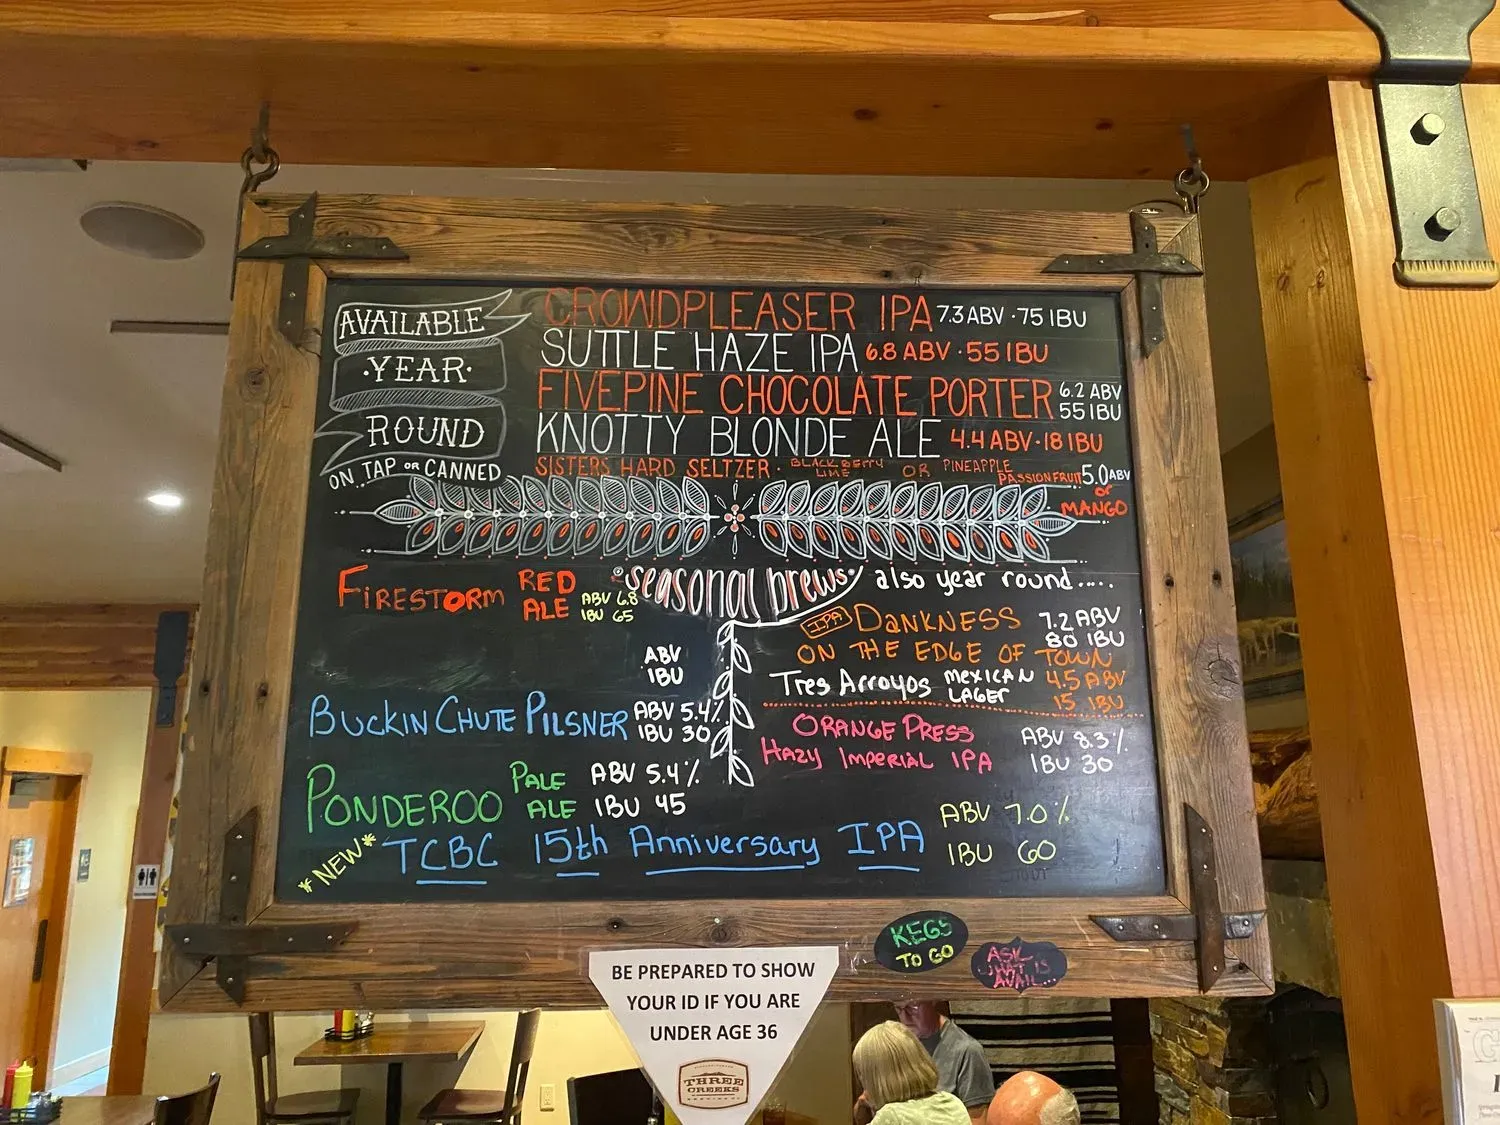 AVAILABLE
·YEAR·
ROUND
ON TAP OR CANNED
CROWDPLEASER IPA 7.3 ABV · 75 IBU
SUTTLE HAZE IPA 6.8 ABV · 55 IBU
FIVEPINE CHOCOLATE PORTER 6.2 ABV
55 IBU
KNOTTY BLONDE ALE 4.4 ABV · 18 IBU
SISTERS HARD SELTZER · BLACKBERRY
LIME OR PINEAPPLE
PASSIONFRUIT 5.0 ABV
or
MANGO
seasonal brews
FIRESTORM RED
ALE ABV 6.8
IBU 65
ABV
IBU
BUCKIN CHUTE PILSNER ABV 5.4%
IBU 30
PONDEROO PALE
ALE ABV 5.4%
IBU 45
*NEW* TCBC 15th Anniversary IPA ABV 7.0%
IBU 60
also year round.....
IPA DANKNESS 7.2 ABV
80 IBU
ON THE EDGE OF TOWN
Tres Arroyos MEXICAN
LAGER 4.5 ABV
15 IBU
ORANGE PRESS
HAZY IMPERIAL IPA ABV 8.3%
IBU 30
KEGS
TO GO
ASK
WHAT IS
AVAIL...
BE PREPARED TO SHOW
YOUR ID IF YOU ARE
UNDER AGE 36
THREE
CREEKS